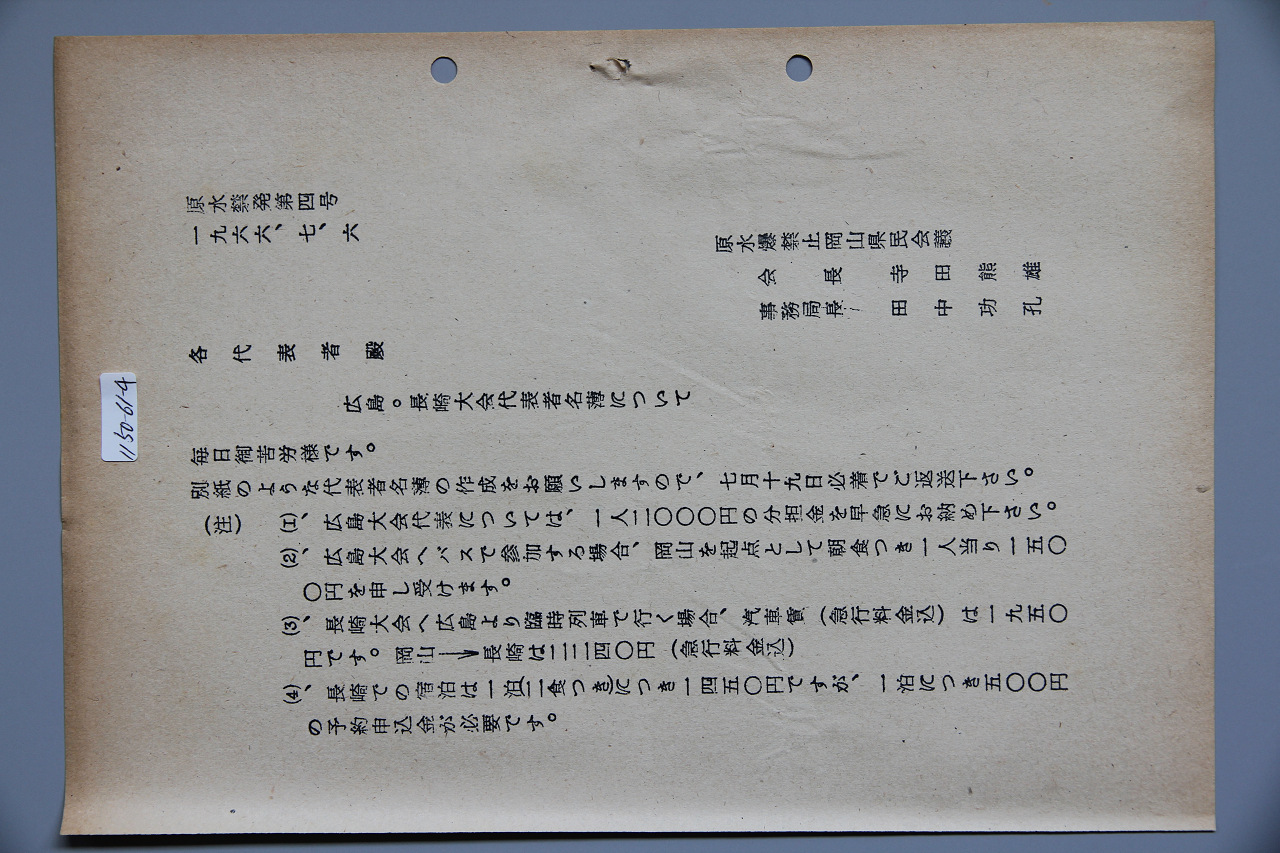 原水禁発第四号
一九六六、七、六
原水爆禁止岡山県民会議
会長 寺田熊雄
事務局長 田中功孔
各代表者殿
広島。長崎大会代表者名簿について
毎日御苦労様です。
別紙のような代表者名簿の作成をお願いしますので、七月十九日必着でご返送下さい。
(注) (1)、広島大会代表については、一人二〇〇〇円の分担金を早急にお納め下さい。
(2)、広島大会へバスで参加する場合、岡山を起点として朝食つき一人当り一五〇
〇円を申し受けます。
(3)、長崎大会へ広島より臨時列車で行く場合、汽車賃(急行料金込)は一九五〇
円です。岡山→長崎は二二四〇円(急行料金込)
(4)、長崎での宿泊は一泊(二食つき)につき一四五〇円ですが、一泊につき五〇〇円
の予約申込金が必要です。
1150-61-4